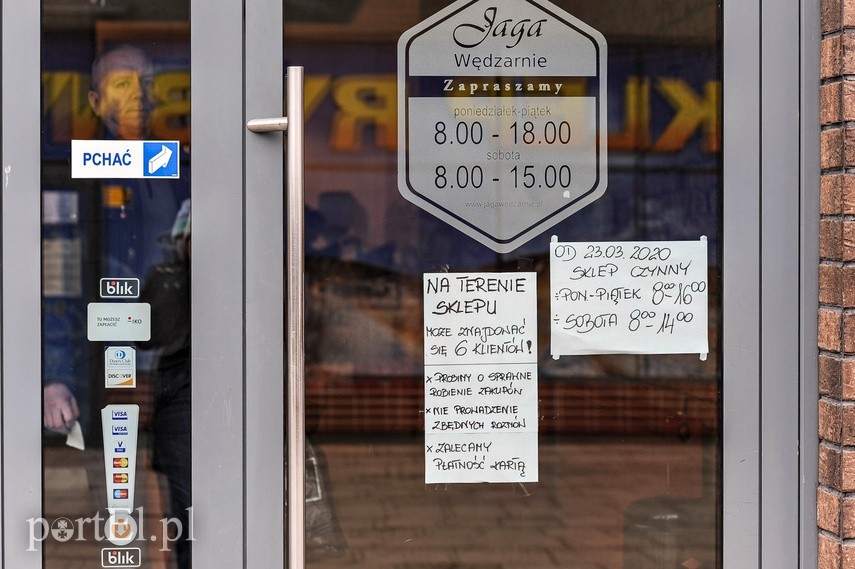 Jaga
Wędzarnie
Zapraszamy
poniedziałek-piątek
8.00 - 18.00
sobota
8.00 - 15.00
www.jagawedzarnie.pl
PCHAĆ
OD 23.03.2020
SKLEP CZYNNY
÷ PON.-PIĄTEK 8⁰⁰-16⁰⁰
÷ SOBOTA 8⁰⁰-14⁰⁰
NA TERENIE
SKLEPU
MOŻE ZNAJDOWAĆ
SIĘ 6 KLIENTÓW!
x PROSIMY O SPRAWNE
ROBIENIE ZAKUPÓW
x NIE PROWADZENIE
ZBĘDNYCH ROZMÓW
x ZALECAMY
PŁATNOŚĆ KARTĄ
blik
TU MOŻESZ
ZAPŁACIĆ
IKO
Diners Club
DISCOVER
VISA
VISA
V
portEl.pl
blik